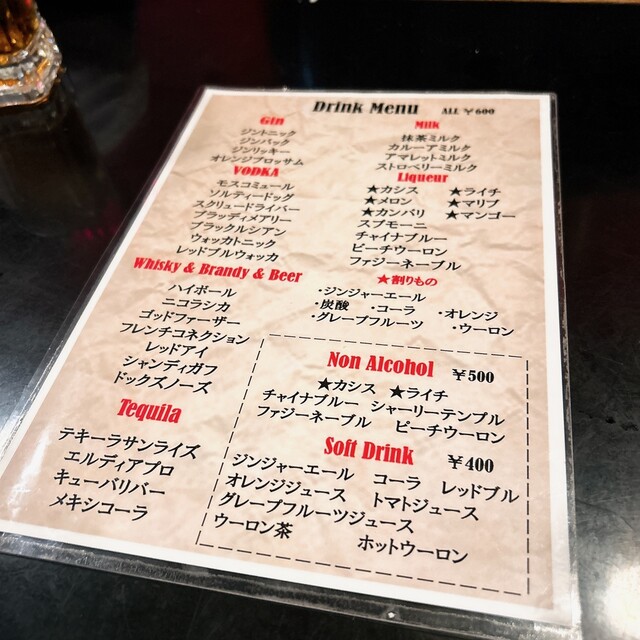 Drink Menu ALL ¥600
Gin
ジントニック
ジンバック
ジンリッキー
オレンジブロッサム
VODKA
モスコミュール
ソルティードッグ
スクリュードライバー
ブラッディメアリー
ブラックルシアン
ウォッカトニック
レッドブルウォッカ
Whisky & Brandy & Beer
ハイボール
ニコラシカ
ゴッドファーザー
フレンチコネクション
レッドアイ
シャンディガフ
ドックズノーズ
Tequila
テキーラサンライズ
エルディアブロ
キューバリバー
メキシコーラ
Milk
抹茶ミルク
カルーアミルク
アマレットミルク
ストロベリーミルク
Liqueur
★カシス ★ライチ
★メロン ★マリブ
★カンパリ ★マンゴー
スプモーニ
チャイナブルー
ピーチウーロン
ファジーネーブル
★割りもの
・ジンジャーエール
・炭酸 ・コーラ ・オレンジ
・グレープフルーツ ・ウーロン
Non Alcohol ¥500
★カシス ★ライチ
チャイナブルー シャーリーテンプル
ファジーネーブル ピーチウーロン
Soft Drink ¥400
ジンジャーエール コーラ レッドブル
オレンジジュース トマトジュース
グレープフルーツジュース
ウーロン茶 ホットウーロン